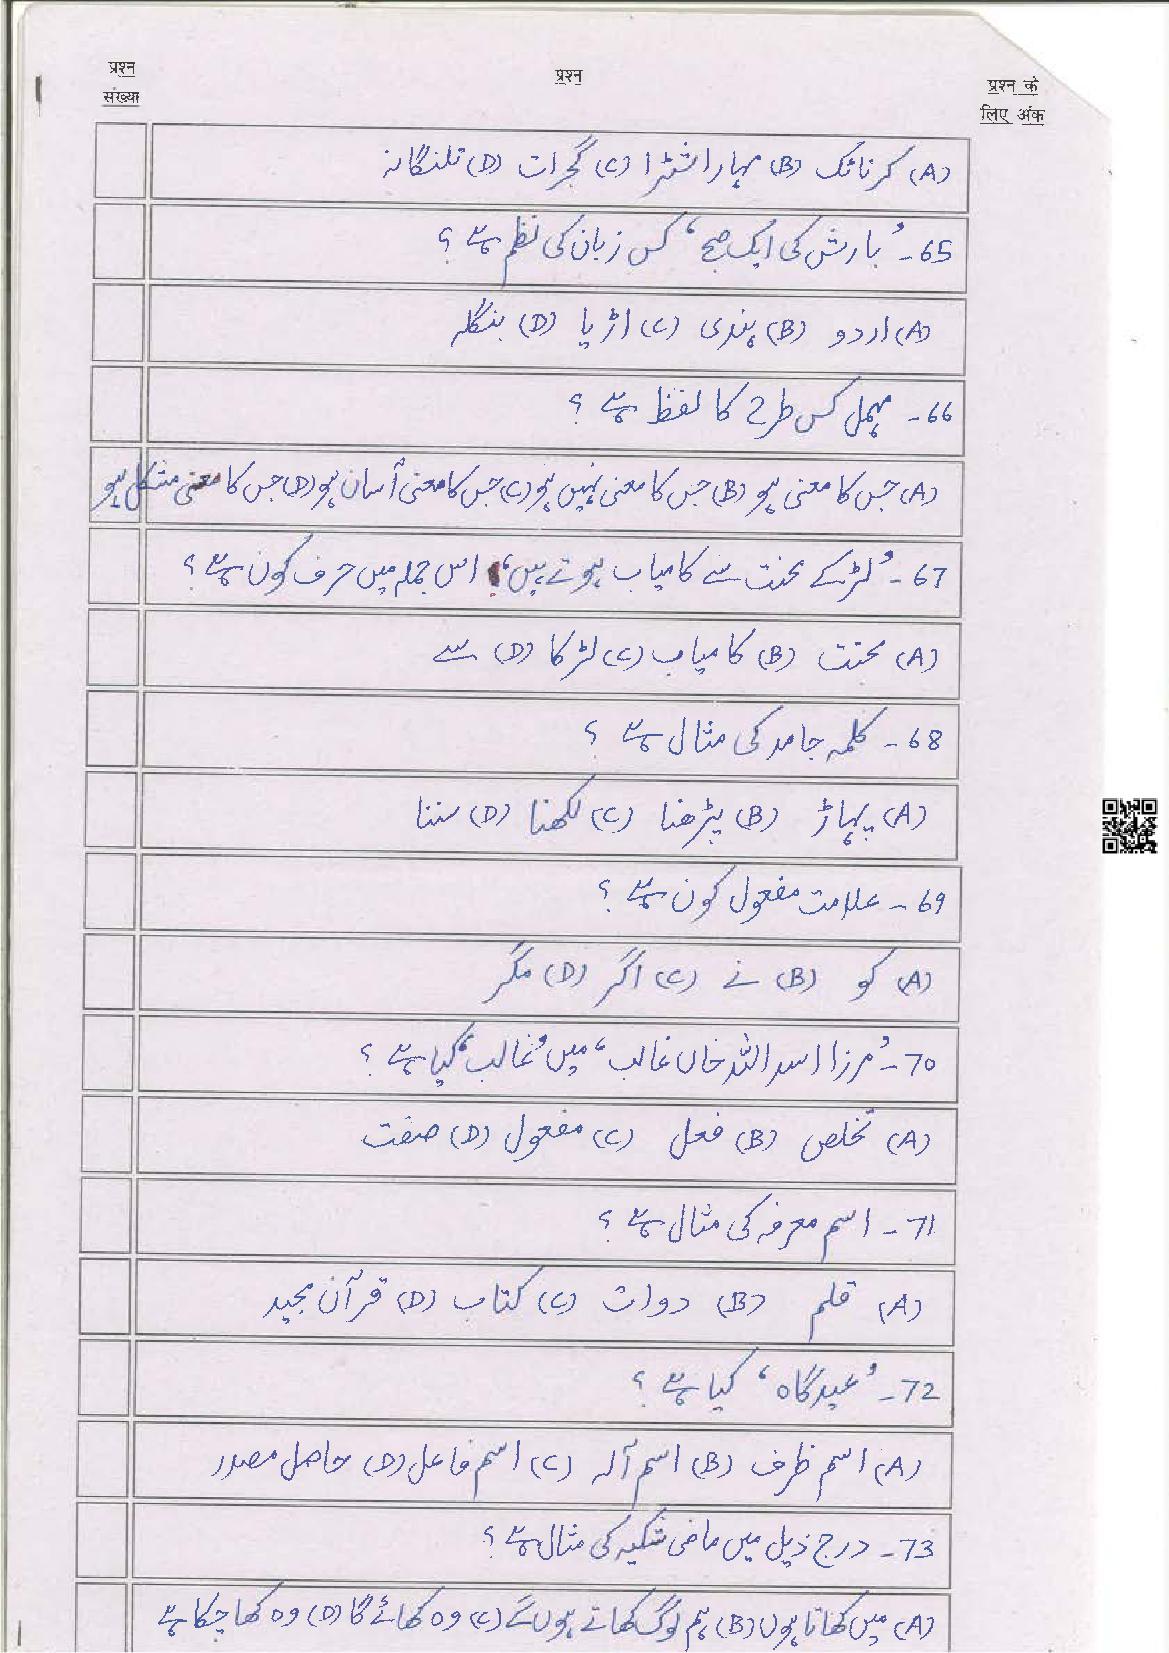 प्रश्न
संख्या
प्रश्न
प्रश्न के
लिए अंक
(A) کرناٹک (B) مہاراشٹرا (C) گجرات (D) تلنگانہ
65- ’بارش کی ایک صبح‘ کس زبان کی نظم ہے ؟
(A) اردو (B) ہندی (C) اڑیا (D) بنگلہ
66- مہمل کس طرح کا لفظ ہے ؟
(A) جس کا معنی ہو (B) جس کا معنی نہیں ہو (C) جس کا معنی آسان ہو (D) جس کا معنی مشکل ہو
67- ’لڑکے محنت سے کامیاب ہوتے ہیں‘ اس جملہ میں حرف کون ہے ؟
(A) محنت (B) کامیاب (C) لڑکا (D) سے
68- کلمہ جامد کی مثال ہے ؟
(A) پہاڑ (B) پڑھنا (C) لکھنا (D) سننا
69- علامت مفعول کون ہے ؟
(A) کو (B) نے (C) اگر (D) مگر
70- ’مرزا اسد اللہ خاں غالب‘ میں ’غالب‘ کیا ہے ؟
(A) تخلص (B) فعل (C) مفعول (D) صفت
71- اسم معرفہ کی مثال ہے ؟
(A) قلم (B) دوات (C) کتاب (D) قرآن مجید
72- ’عیدگاہ‘ کیا ہے ؟
(A) اسم ظرف (B) اسم آلہ (C) اسم فاعل (D) حاصل مصدر
73- درج ذیل میں ماضی شکیہ کی مثال ہے ؟
(A) میں کھاتا ہوں (B) ہم لوگ کھاتے ہوں گے (C) وہ کھائے گا (D) وہ کھا چکا ہے